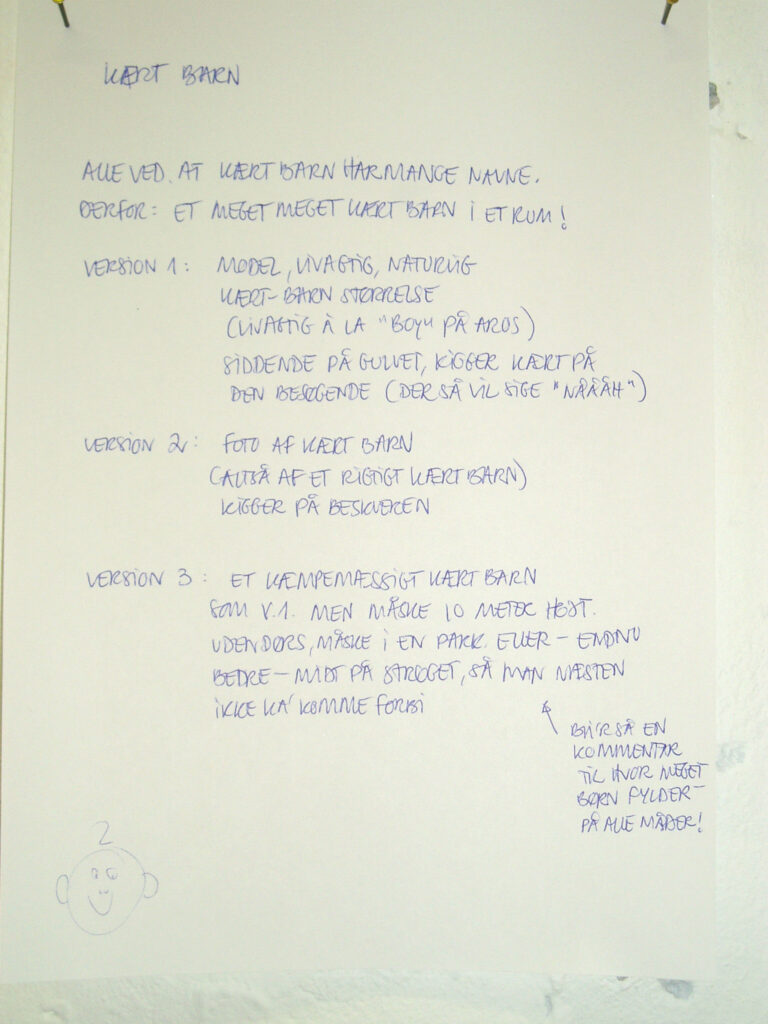 KÆRT BARN
ALLE VED. AT KÆRT BARN HAR MANGE NAVNE.
DERFOR: ET MEGET MEGET KÆRT BARN I ET RUM!
VERSION 1: MODEL, LIVAGTIG, NATURLIG
KÆRT-BARN STØRRELSE
(LIVAGTIG À LA "BOY" PÅ AROS)
SIDDENDE PÅ GULVET, KIGGER KÆRT PÅ
DEN BESØGENDE (DER SÅ VIL SIGE "NÅÅÅH")
VERSION 2: FOTO AF KÆRT BARN
(ALTSÅ AF ET RIGTIGT KÆRT BARN)
KIGGER PÅ BESKUEREN
VERSION 3: ET KÆMPEMÆSSIGT KÆRT BARN
SOM V.1. MEN MÅSKE 10 METER HØJT.
UDENDØRS, MÅSKE I EN PARK. ELLER - ENDNU
BEDRE - MIDT PÅ STRØGET, SÅ MAN NÆSTEN
IKKE KA' KOMME FORBI
BLI'R SÅ EN
KOMMENTAR
TIL HVOR MEGET
BØRN FYLDER -
PÅ ALLE MÅDER!